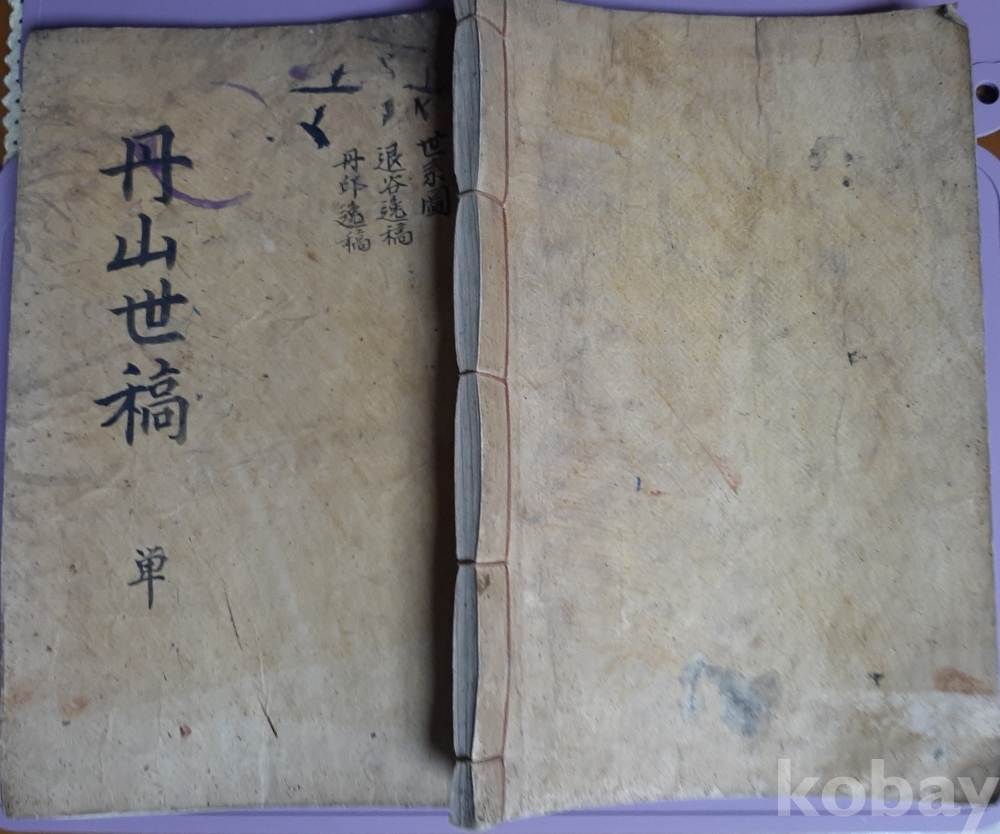 丹山世稿
单
世系圖
退谷逸稿
丹邱逸稿
kobay